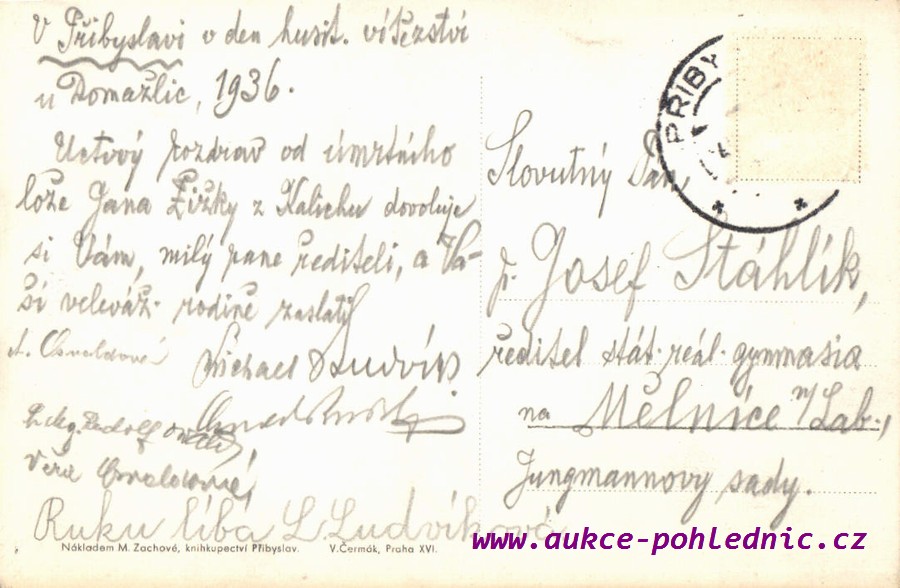 V Přibyslavi v den husit. vítězství
u Domažlic, 1936.
Uctivý pozdrav od úmrtního
lože Jana Žižky z Kalichu dovoluje
si Vám, milý pane řediteli, a Va-
ší veleváž. rodině zaslati
Osvaldové
Michael Ludvík
Rudolf
Věra Osvaldová
Ruku líbá L. Ludvíková
Nákladem M. Zachové, knihkupectví Přibyslav. V. Čermák, Praha XVI.
PŘIBY
Slovutný Pan,
p. Josef Šťáhlík,
ředitel stát. reál. gymnasia
na Mělníce n/Lab.,
Jungmannovy sady.
www.aukce-pohlednic.cz